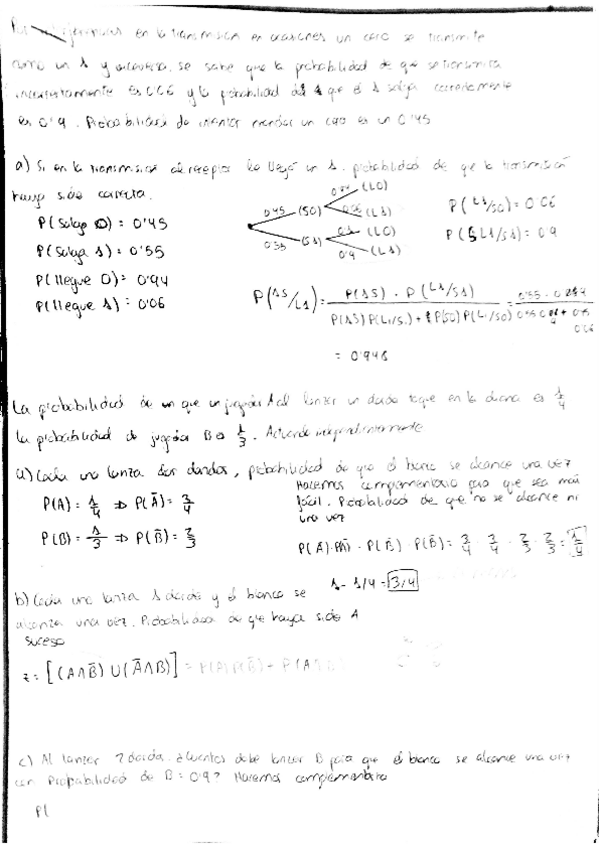 en la transmisión en ocasiones un cero se transmite
como un 1 y viceversa, se sabe que la probabilidad de que se transmita
incorrectamente es 0'06 y la probabilidad de que el 1 salga correctamente
es 0'9. Probabilidad de intentar mandar un cero es un 0'45
a) Si en la transmisión al receptor le llegó un 1. probabilidad de que la transmisión
haya sido correcta.
P(Salga 0) = 0'45
P(Salga 1) = 0'55
P(llegue 0) = 0'94
P(llegue 1) = 0'06
0'45 (S0) 0'94 (L0)
0'06 (L1)
0'55 (S1) 0'1 (L0)
0'9 (L1)
P(L1/S0) = 0'06
P(L1/S1) = 0'9
P(1S/L1) = P(1S) · P(L1/S1)
= 0'948
La probabilidad de un que un jugador A al lanzar un dardo toque en la diana es 1/4
La probabilidad de jugador B es 1/3. Actuando independientemente
a) Cada uno lanza dos dardos, probabilidad de que el blanco se alcance una vez
Hacemos complementario para que sea más
fácil. Probabilidad de que no se alcance ni
una vez
P(A) = 1/4 ⇒ P(Ā) = 3/4
P(B) = 1/3 ⇒ P(B̄) = 2/3
P(Ā)·P(Ā) · P(B̄) · P(B̄) = 3/4 · 3/4 · 2/3 · 2/3 = 1/4
1 - 1/4 = 3/4
b) Cada uno lanza 1 dardo y el blanco se
alcanza una vez. Probabilidad de que haya sido A
Suceso
z = [(A∩B̄) ∪ (Ā∩B)] =
c) Al lanzar 2 dardos. ¿Cuantos debe lanzar B para que el blanco se alcance una vez
con Probabilidad de B = 0'9? Hacemos complementario
P(